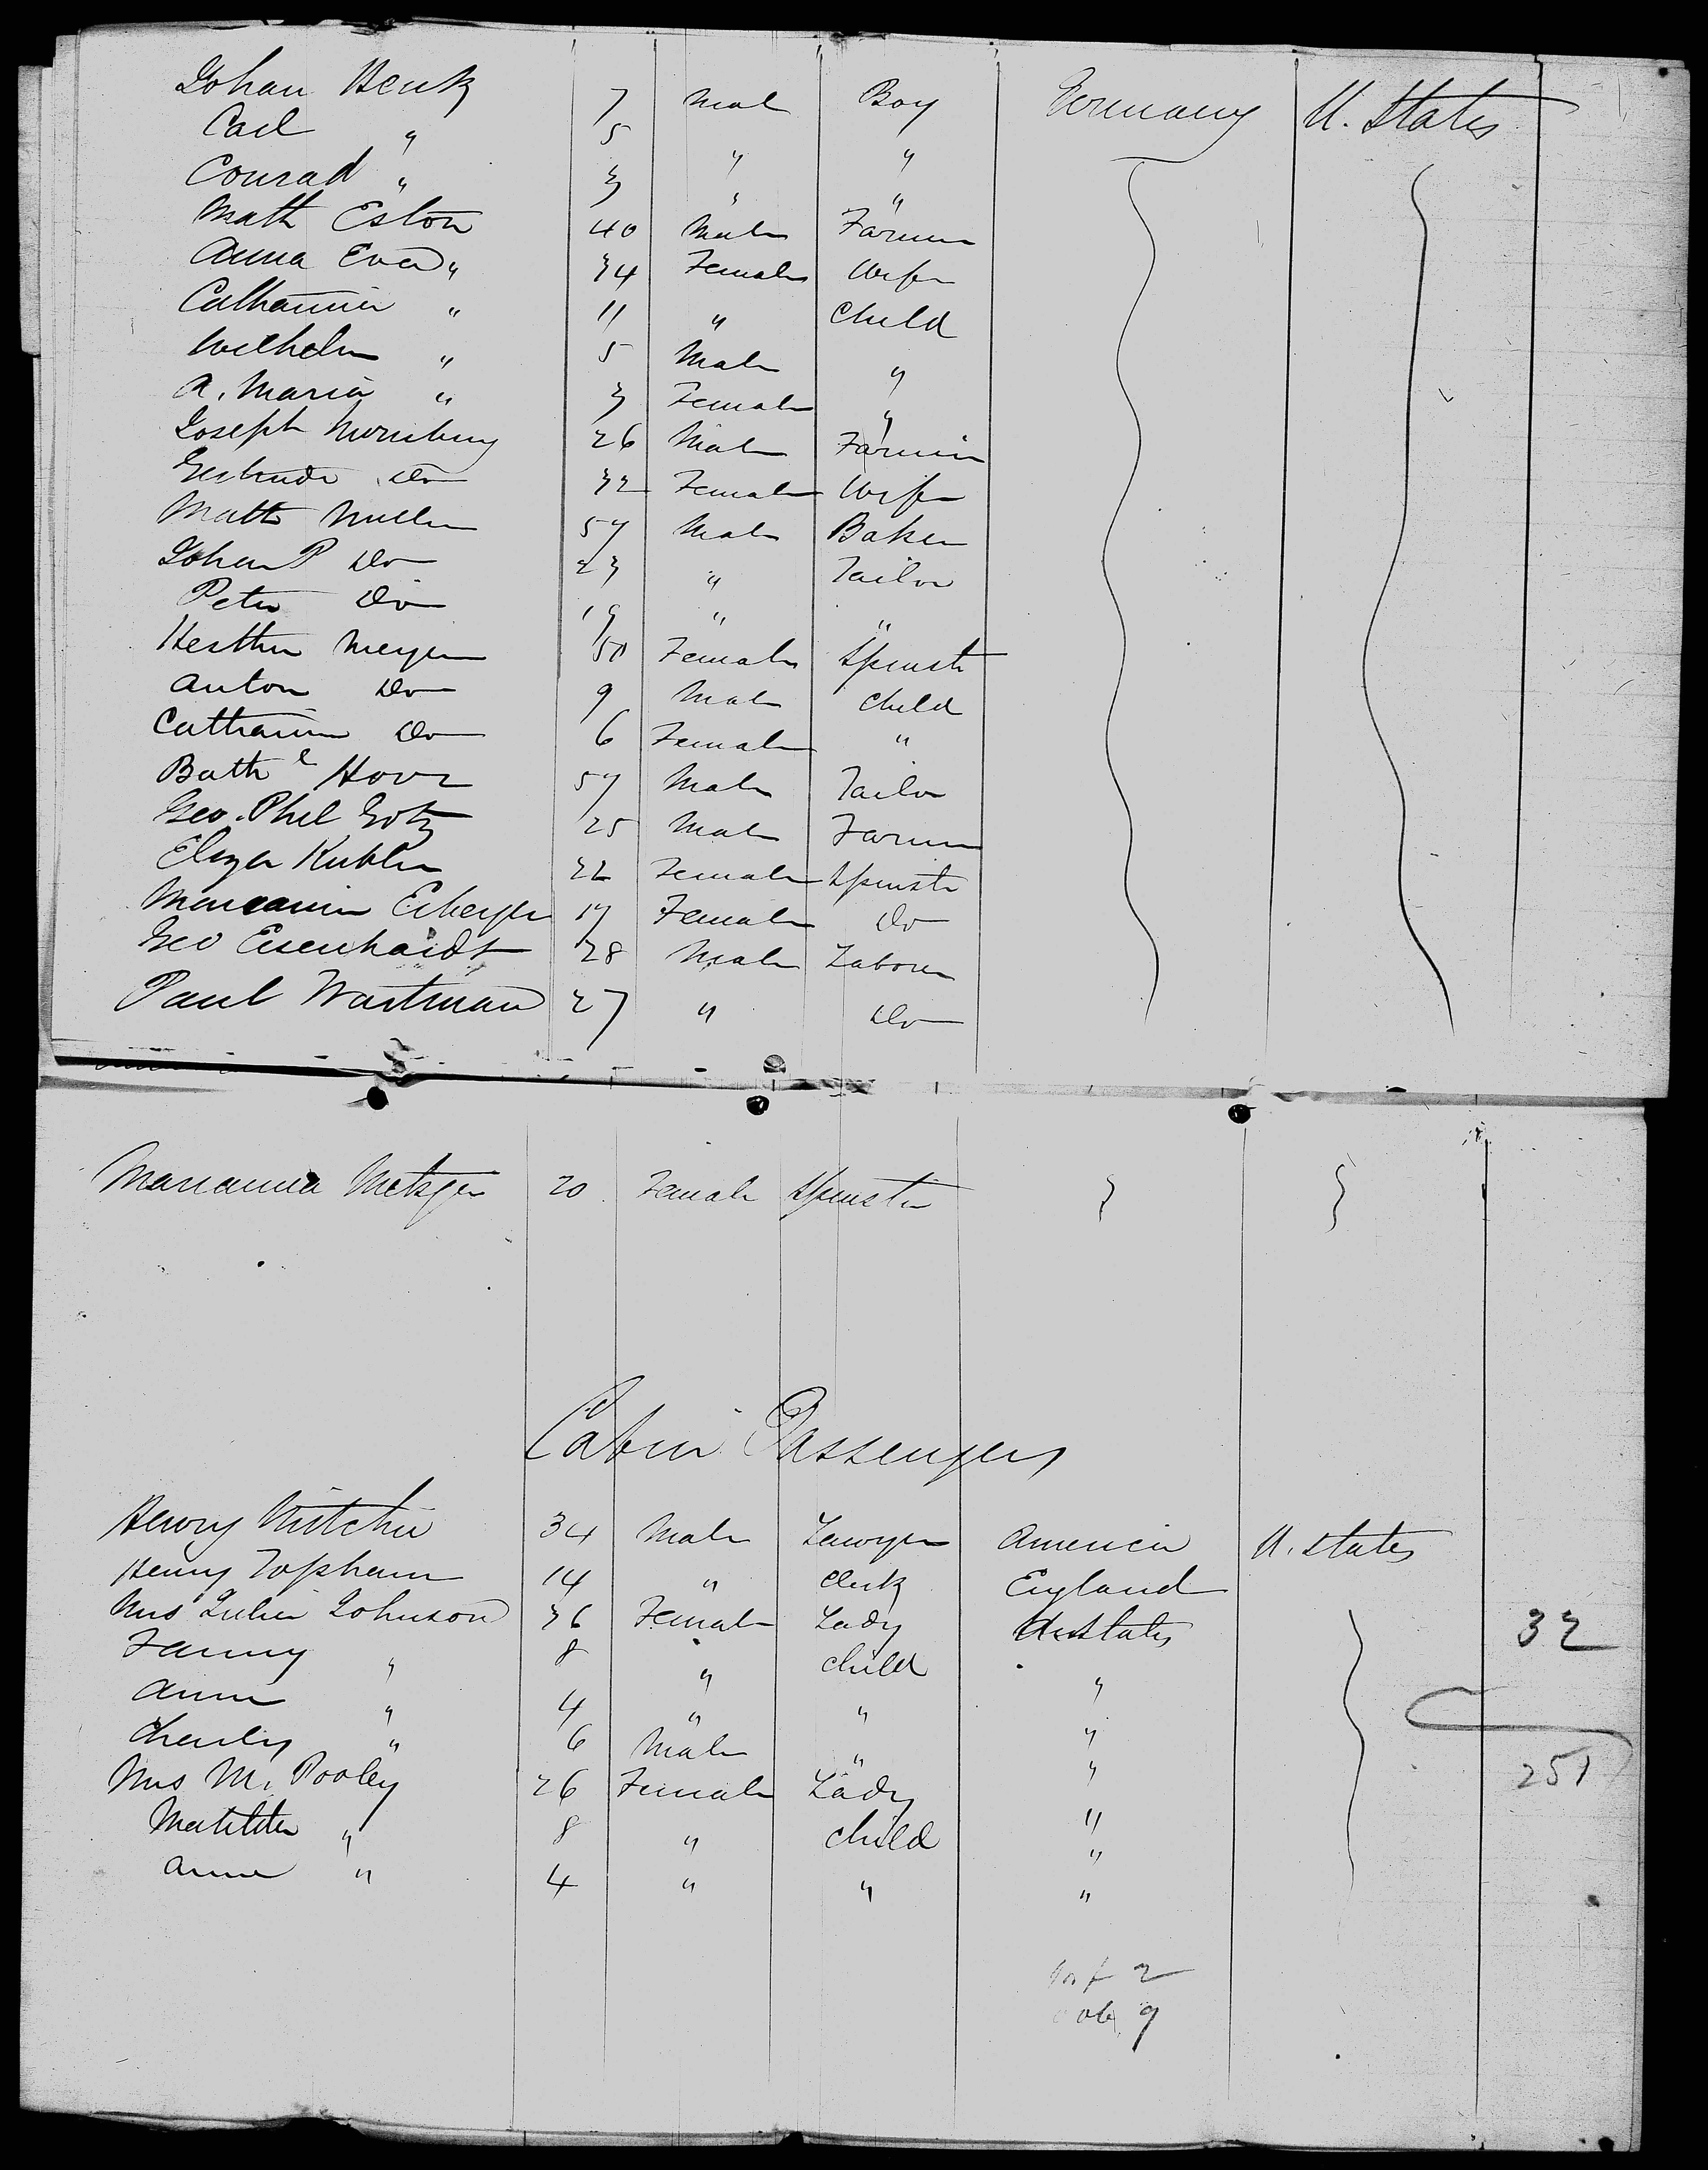 Johan Henk 7 Mal Boy Germany U. States
Carl " 5 " "
Conrad " 3 " "
Math Eston 40 Male Farmer
Anna Eva " 34 Female Wife
Catharine " 11 " Child
Wilhelm " 5 Male "
A. Maria " 3 Female "
Joseph 26 Male Farmer
Gertrude Do 32 Female Wife
Math Muller 57 Male Baker
Johan P Do 23 " Tailor
Peter Do 19 " "
Meyer 50 Female Spinstr
Anton Do 9 Male Child
Catharine Do 6 Female "
57 Male Tailor
Geo. Phil Gotz 25 Male Farmer
Kubler 22 Female Spinstr
17 Female Do
Geo Eisenhardt 28 Male Labourer
Paul Wartman 27 " Do
Marianna Metzger 20 Female Spinster
Cabin Passengers
Henry 34 Male Lawyer America U. States
Henry Topham 14 " Clerk England
Mrs Julia Johnson 36 Female Lady U States 32
Fanny " 8 " Child "
Anne " 4 " " "
Charley " 6 Male " "
Mrs M. Pooley 26 Female Lady " 251
Matilda " 8 " Child "
Anne " 4 " " "
2
9